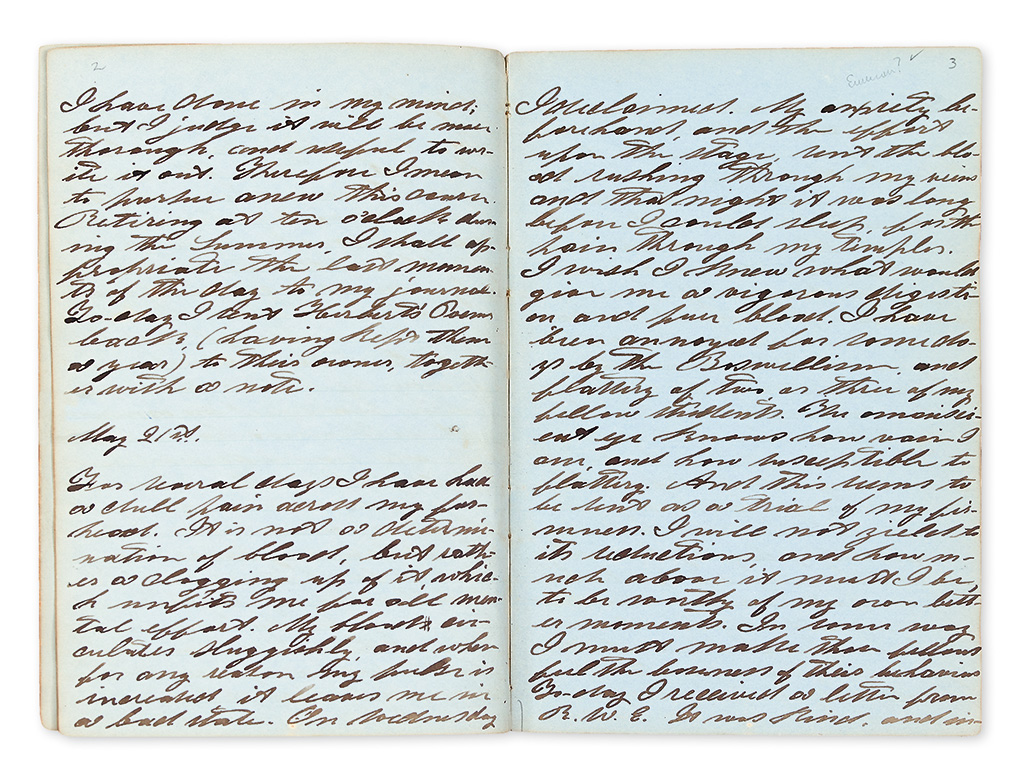 2
I have done in my mind;
but I judge it will be more
thorough, and useful, to wr-
ite it out. Therefore I mean
to pursue anew this course.
Retiring at ten o'clock dur-
ing the Summer, I shall ap-
propriate the last momen-
ts of the day to my journal.
To-day I sent Herbert's Poems
back, (having kept them
a year) to their owner, togeth-
er with a note.
May 21st.
For several days I have had
a dull pain across my for-
head. It is not a determi-
nation of blood, but rath-
er a clogging up of it, whic-
h unfits me for all men-
tal effort. My blood cir-
culates sluggishly, and when
for any reason my pulse is
increased it leaves me in
a bad state. On Wednesday
Emerson? ✓
3
I declaimed. My anxiety be-
forehand, and the effort
upon the stage, sent the blo-
od rushing through my veins
and that night it was long
before I could sleep, for the
pains through my temples.
I wish I knew what would
give me a vigorous digesti-
on and pure blood. I have
been annoyed for some da-
ys by the Boswellism, and
flattery of two or three of my
fellow students. The omnisci-
ent eye knows how vain I
am, and how susceptible to
flattery. And this seems to
be sent as a trial of my fir-
mness. I will not yield to
its seductions, and how m-
uch above it must I be,
to be worthy of my own bett-
er moments. In some way
I must make these fellows
feel the baseness of their behavior.
To-day I received a letter from
R. W. E. It was kind, and in-